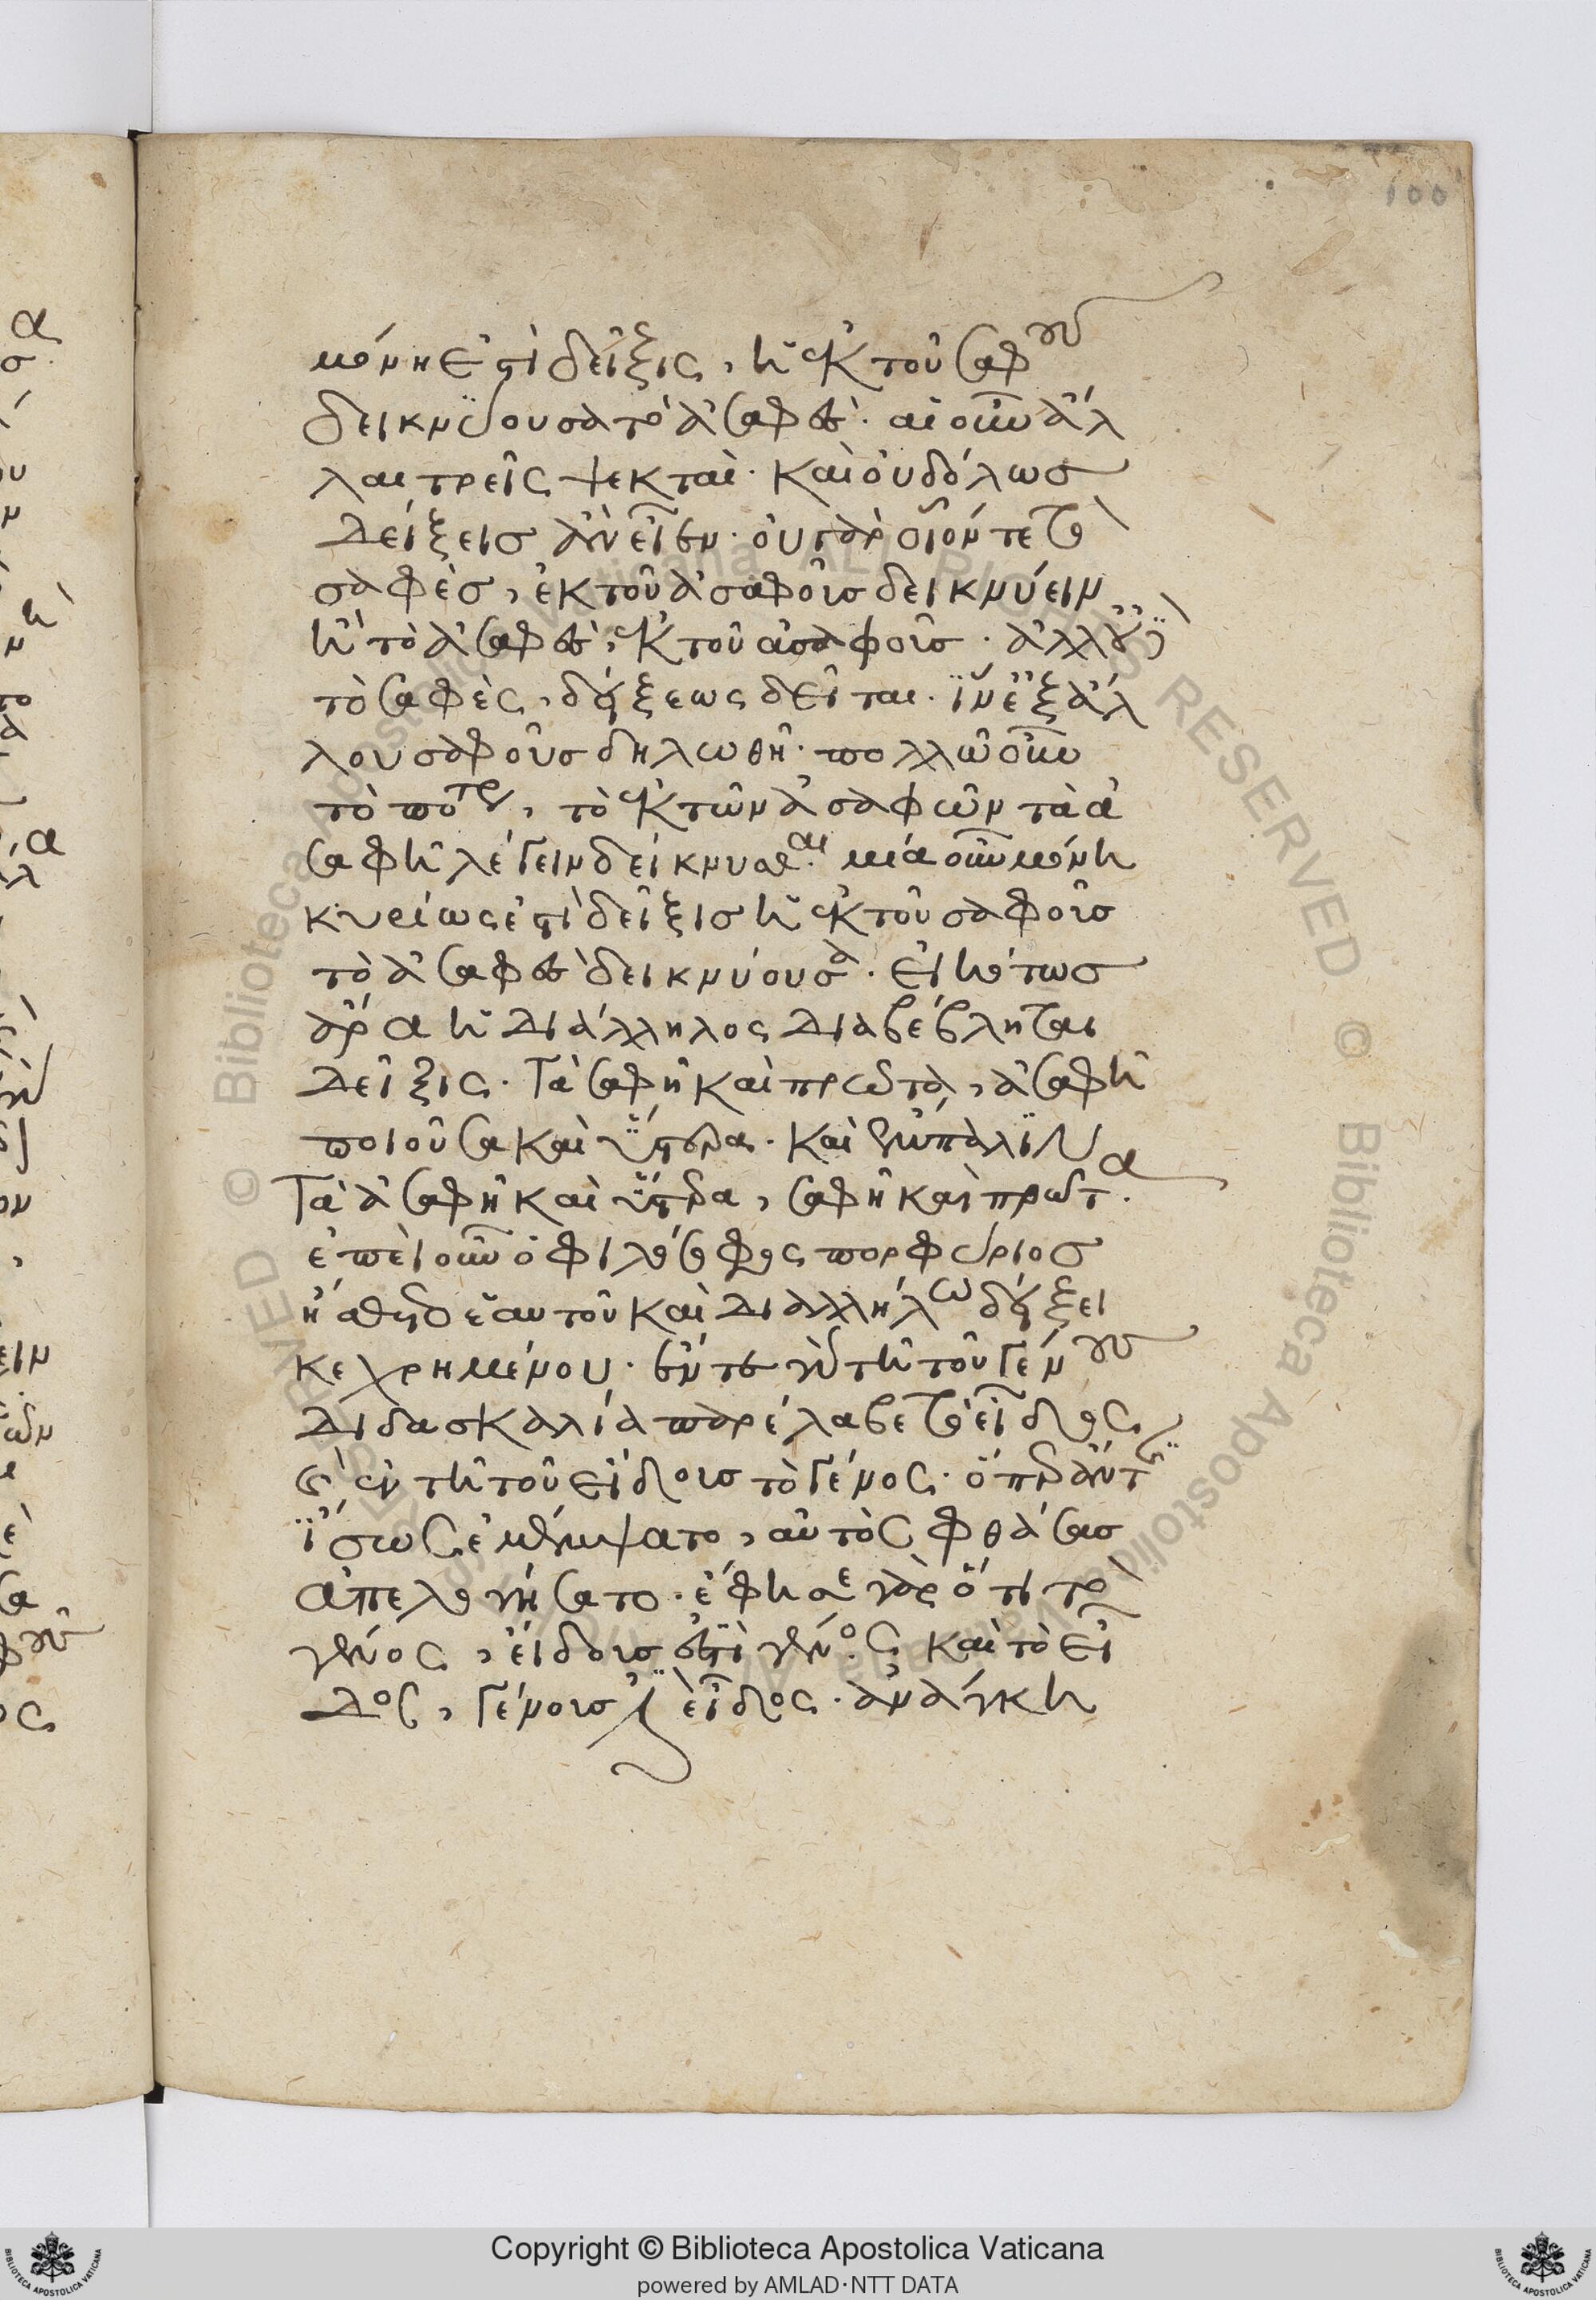 100
μόνη ἐστὶ δεῖξις, ἡ ἐκ τοῦ σαφοῦς
δεικνύουσα τὸ ἀσαφές. αἱ οὖν ἄλ
λαι τρεῖς ψεκταί. καὶ οὐδόλως
δείξεις ἂν εἶεν. οὐ γὰρ οἷόν τε τὸ
σαφὲς, ἐκ τοῦ ἀσαφοῦς δεικνύειν
ἢ τὸ ἀσαφὲς, ἐκ τοῦ ἀσαφοῦς. ἀλλ' οὐδὲ
τὸ σαφὲς, δείξεως δεῖται. ἵν' ἐξ ἄλ
λου σαφοῦς δηλωθῆ. πολλῶ οὖν
τὸ πότερον, τὸ ἐκ τῶν ἀσαφῶν τὰ ἀ
σαφῆ λέγειν δείκνυσθαι. μία οὖν μόνη
κυρίως ἐστὶ δεῖξις ἡ ἐκ τοῦ σαφοῦς
τὸ ἀσαφὲς δεικνύουσα. εἰκότως
ἄρα ἡ διάλληλος διαβέβληται
δεῖξις. τὰ σαφῆ καὶ πρῶτα, ἀσαφῆ
ποιοῦσα καὶ ὕστερα. καὶ ἔμπαλιν
τὰ ἀσαφῆ καὶ ὕστερα, σαφῆ καὶ πρῶτα.
ἐπεὶ οὖν ὁ φιλόσοφος πορφύριος
ἤσθετο ἑαυτοῦ καὶ διαλλήλω δείξει
κεχρημένου. ἔν τε γὰρ τῆ τοῦ γένους
διδασκαλία παρέλαβε τὸ εἶδος,
καὶ ἐν τῆ τοῦ εἴδους τὸ γένος. ὅπερ ἄν τις
ἴσως ἐμέμψατο, αὐτὸς φθάσας
ἀπελογήσατο. ἔφησε γὰρ ὅτι τὸ
γένος, εἴδους ἐστὶ γένος, καὶ τὸ εἶ
δος, γένους ἐστὶ εἶδος. ἀνάγκη
Copyright © Biblioteca Apostolica Vaticana
powered by AMLAD·NTT DATA